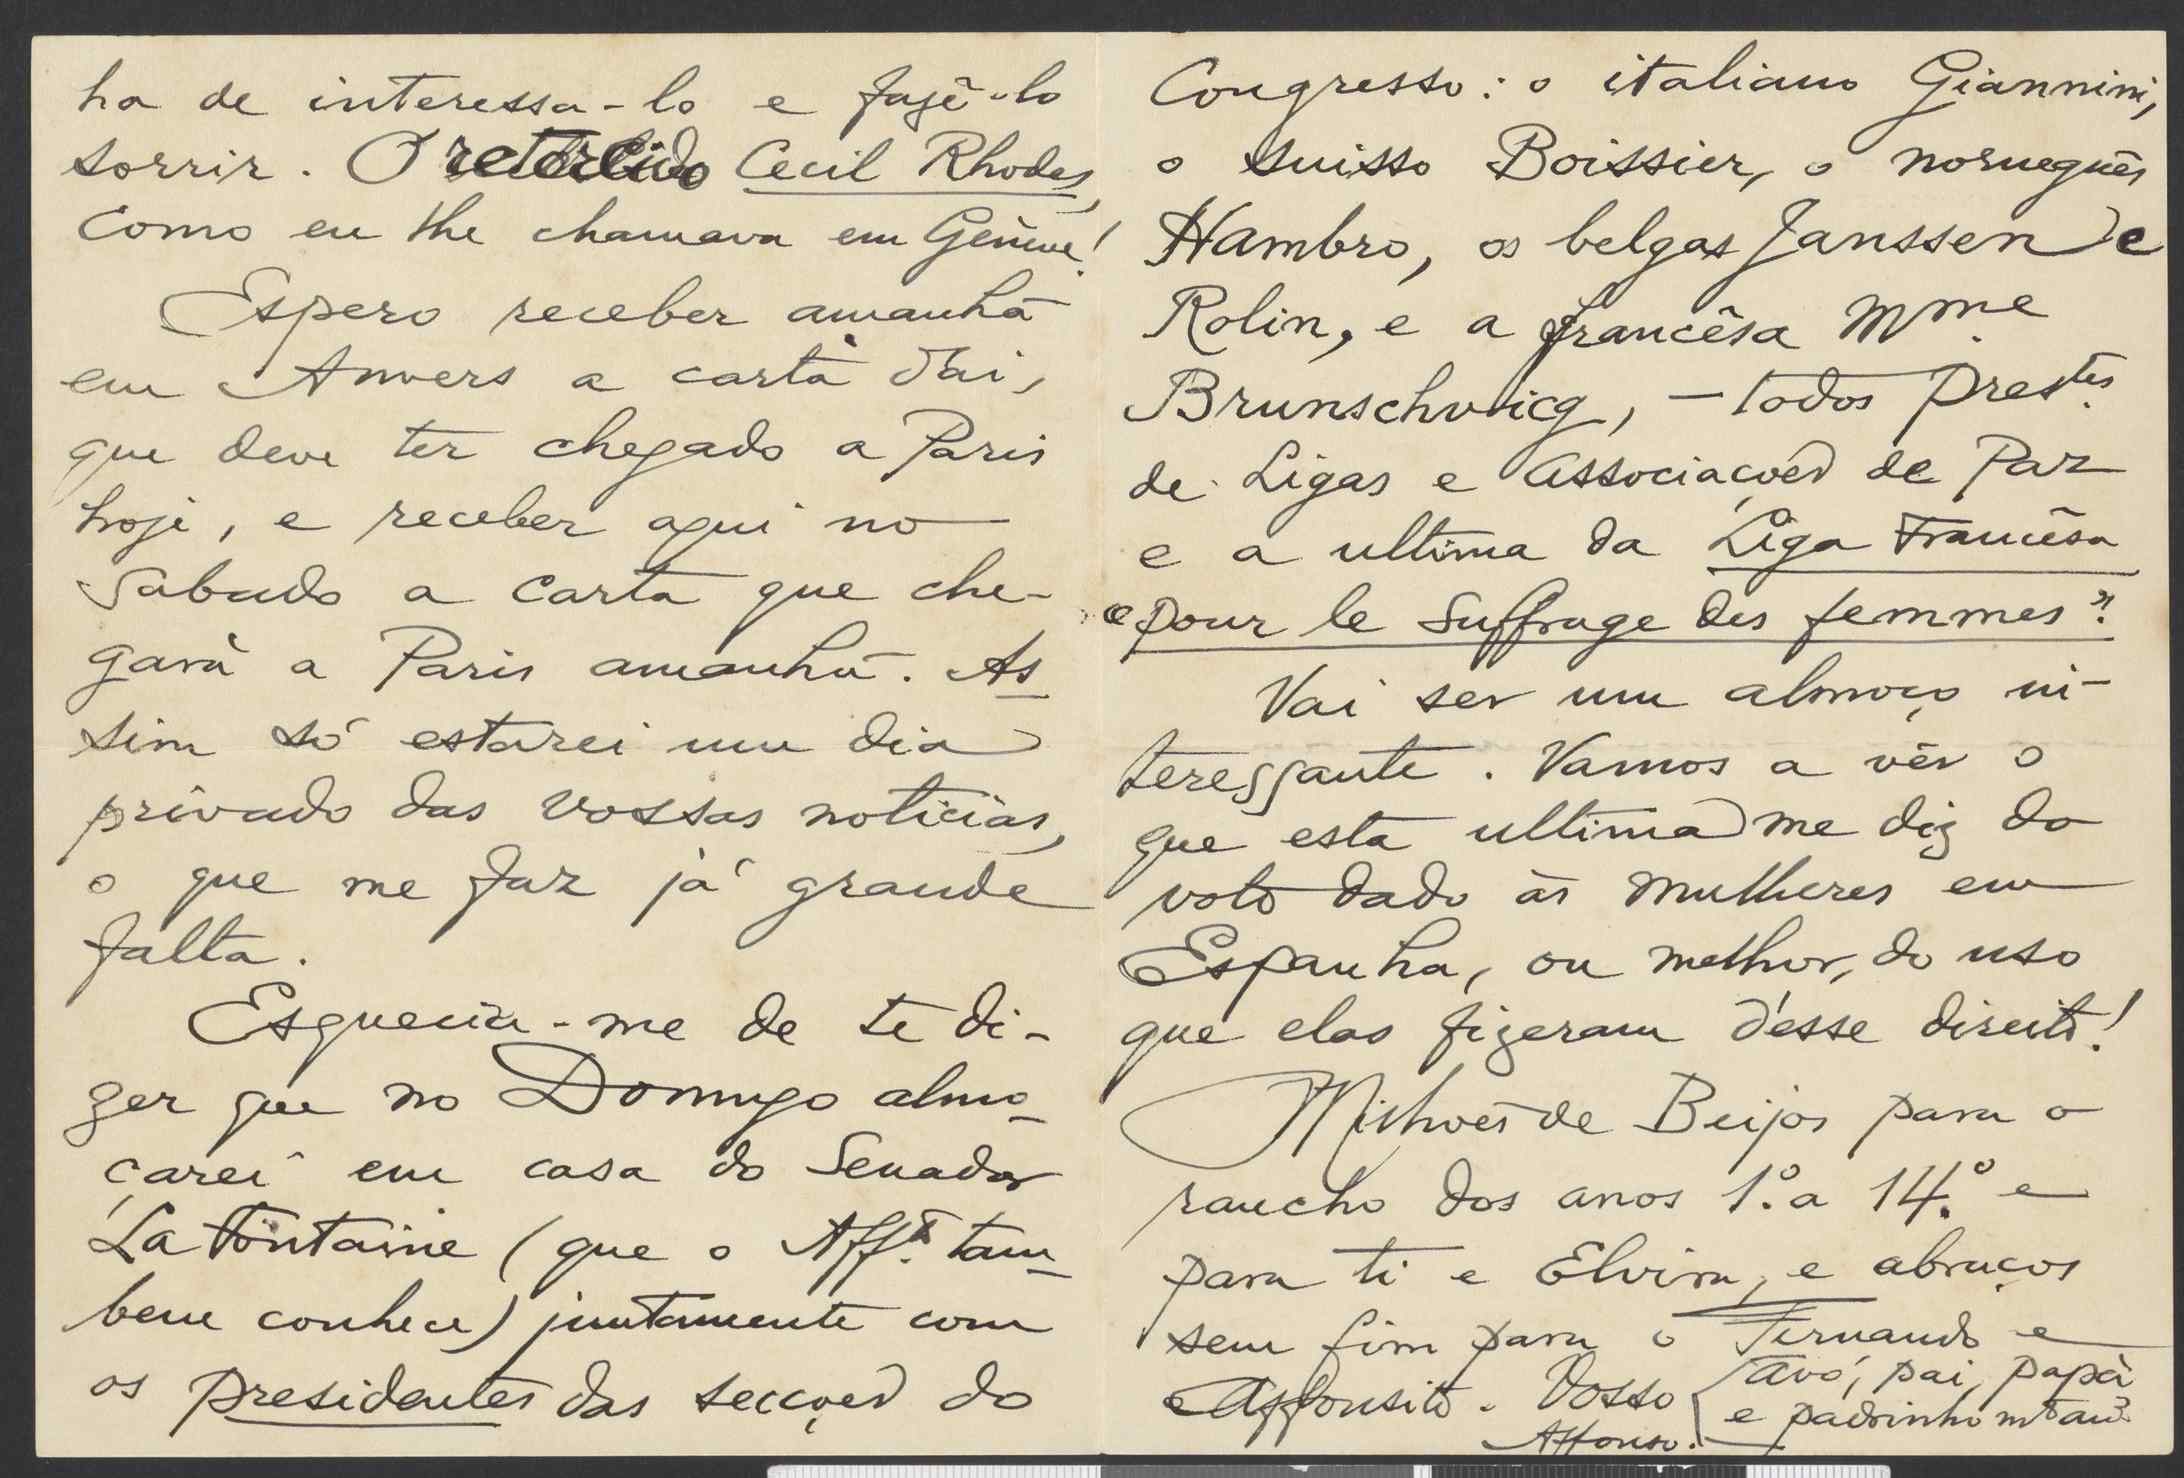 ha de interessa-lo e fazê-lo
sorrir. O retorcido Cecil Rhodes,
como eu lhe chamava em Genève!
Espero receber amanhã
em Anvers a carta d'ai,
que deve ter chegado a Paris
hoje, e receber aqui no
Sabado a carta que che-
gará a Paris amanhã. As-
sim só estarei um dia
privado das vossas noticias,
o que me faz já grande
falta.
Esquecia-me de te di-
zer que no Domingo almo-
çarei em casa do Senador
La Fontaine (que o Aff.º tam-
bem conhece) juntamente com
os presidentes das secções do
Congresso: o italiano Giannini,
o suisso Boissier, o norueguês
Hambro, os belgas Janssen e
Rolin, e a francêsa Mme.
Brunschvicg, — todos Prestes.
de Ligas e Associações de Paz
e a ultima da Liga Francêsa
"pour le Suffrage des femmes".
Vai ser um almoço in-
teressante. Vamos a vêr o
que esta ultima me diz do
voto dado às mulheres em
Espanha, ou melhor, do uso
que elas fizeram d'esse direito!
Milhões de Beijos para o
rancho dos anos 1.º a 14.º e
para ti e Elvira, e abraços
sem fim para o Fernando e
Affonsito. Vosso
avô, pai, papá
e padrinho mto amº
Affonso.